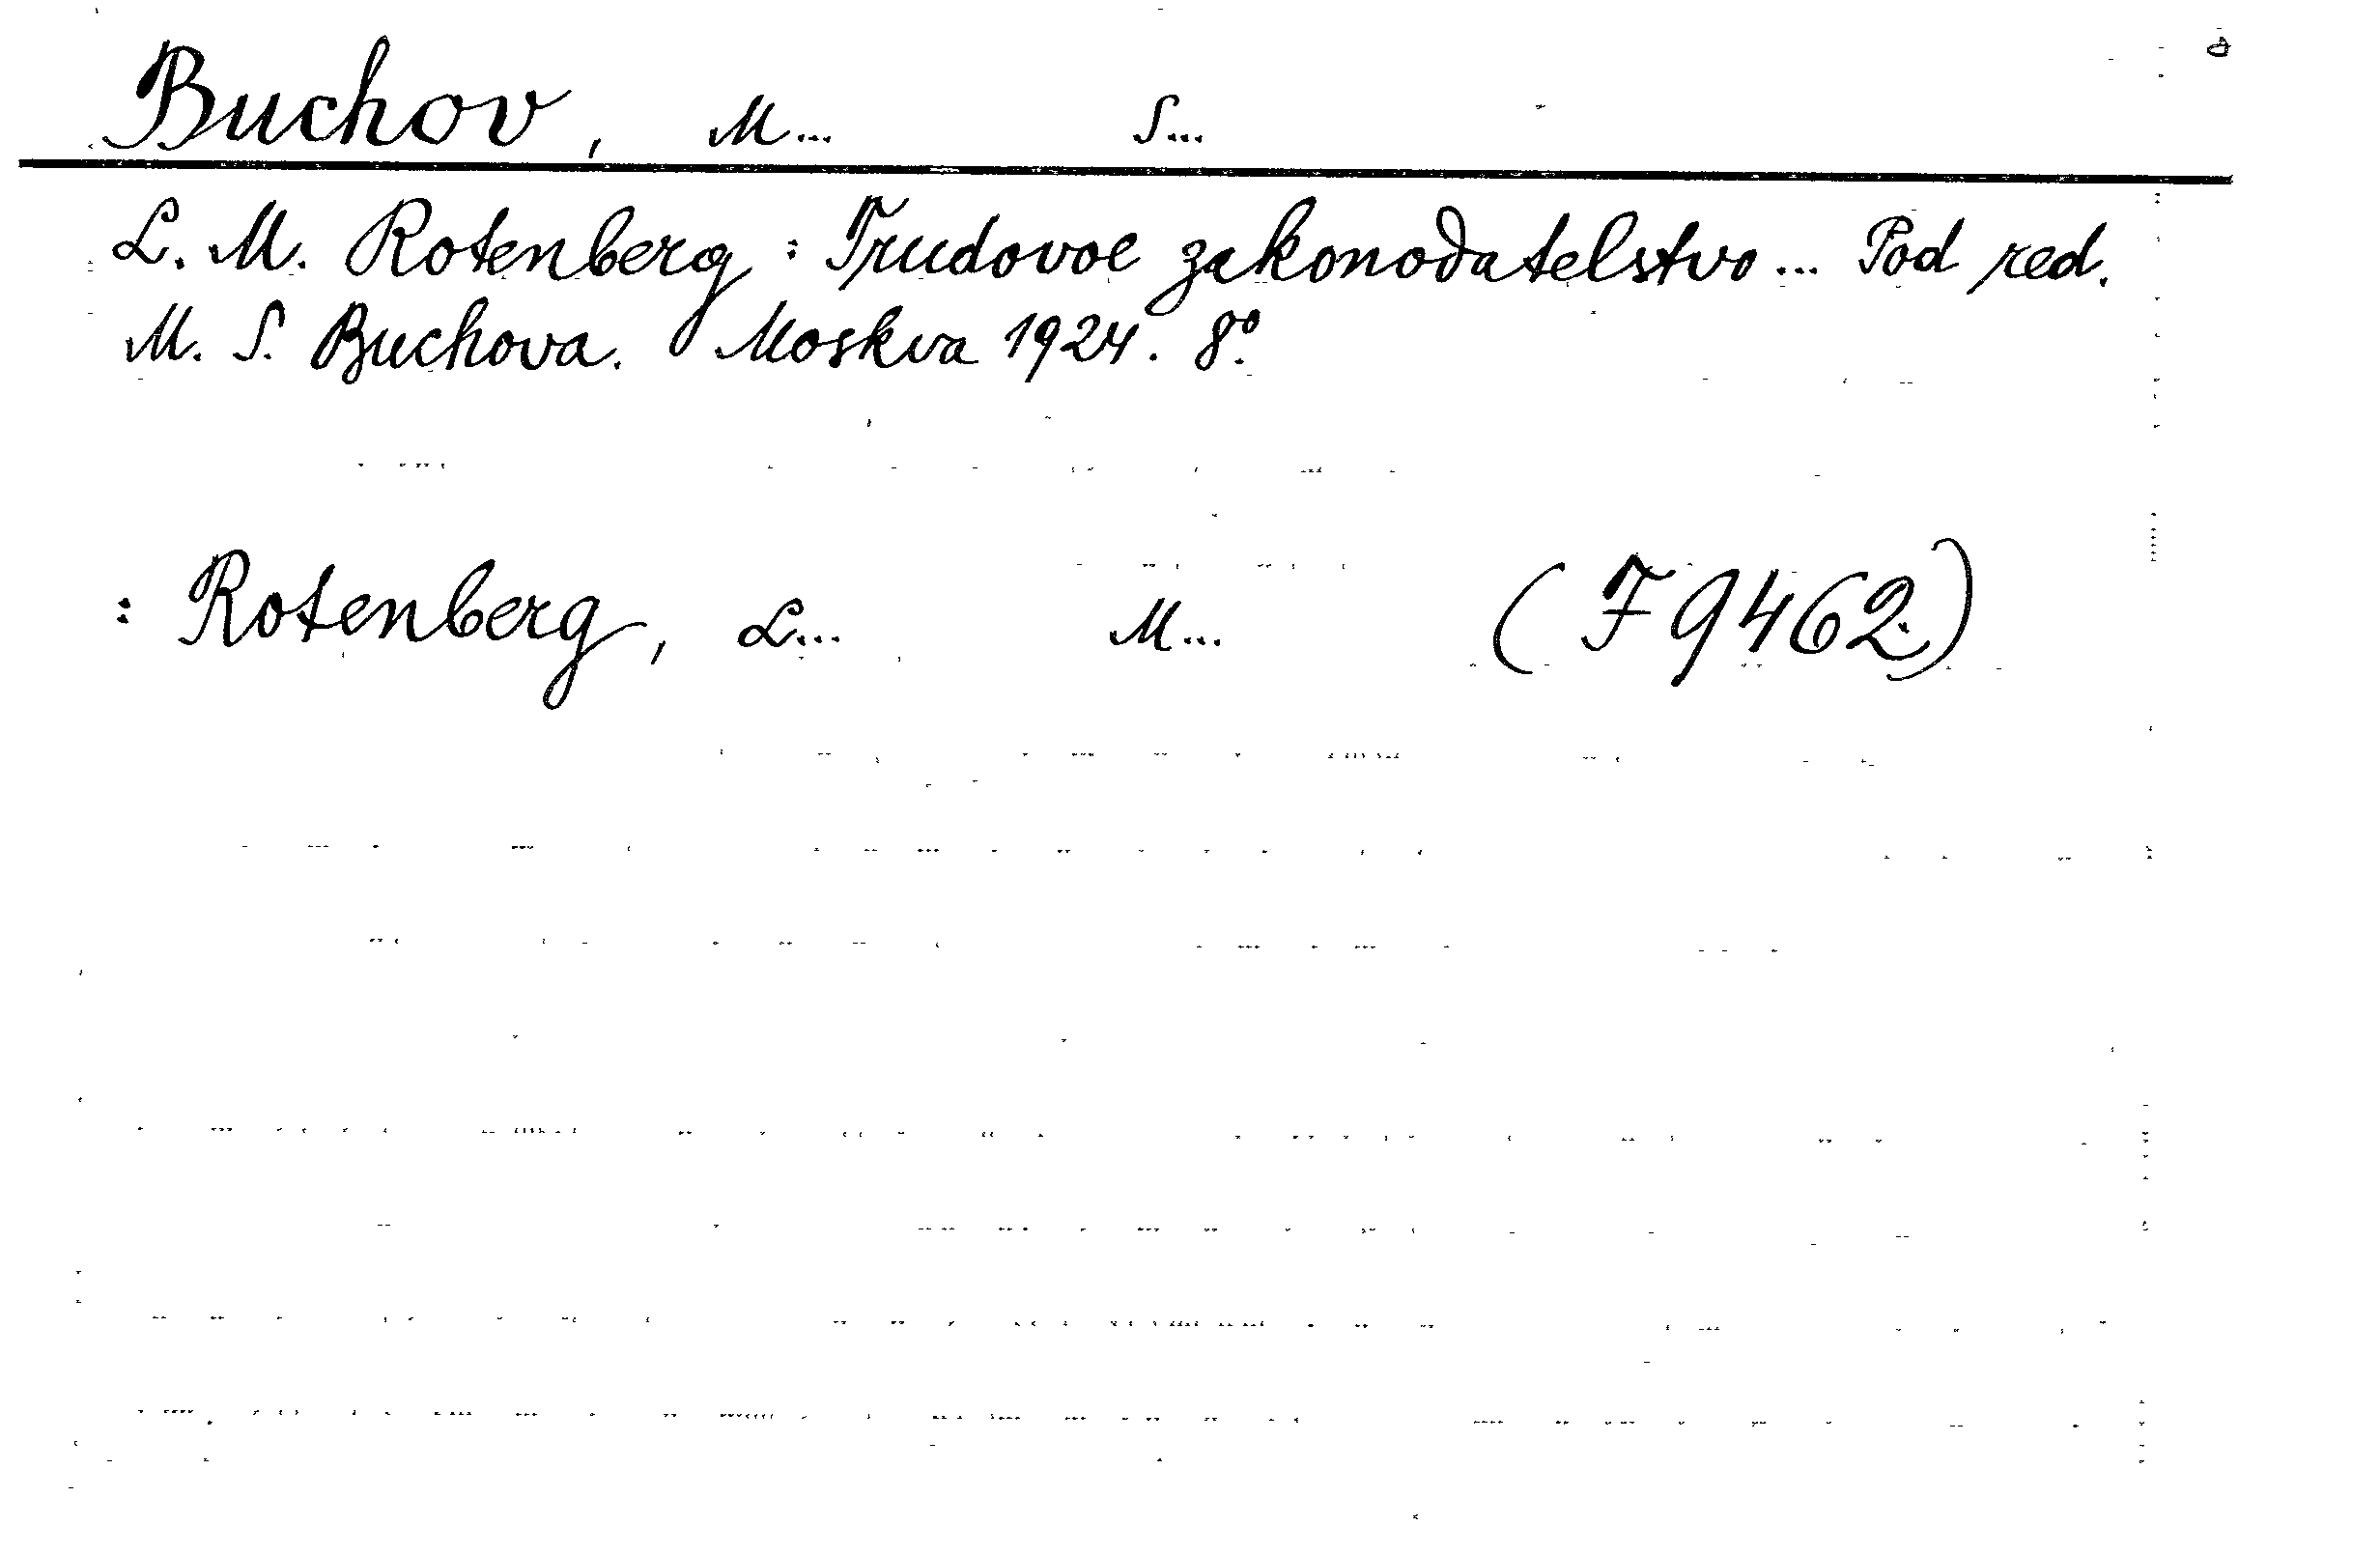 Buchov, M... S...
L. M. Rotenberg : Trudovoe zakonodatelstvo ... Pod red.
M. S. Buchova. Moskva 1924. 8°.
: Rotenberg, L... M... (F 9462.)